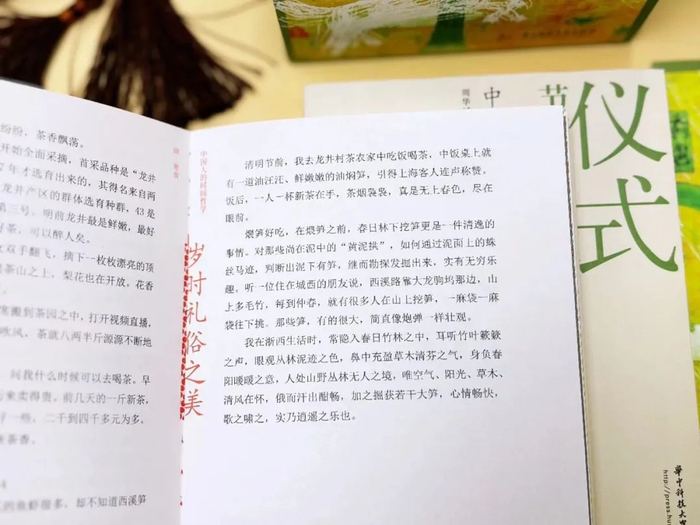 纷纷，茶香飘荡。
开始全面采摘，首采品种是“龙井
年才选育出来的，其得名来自两
龙井产区的群体选育种，43是
第三号。明前龙井最是鲜嫩，最好
好茶，可以醉人矣。
双手翻飞，摘下一枚枚漂亮的顶
茶山之上，梨花也在开放，花香
常搬到茶园之中，打开视频直播，
吹风，茶就八两半斤源源不断地
问我什么时候可以去喝茶。早
卖得贵。前几天的一斤新茶，
一些，二千到四千多元为多。
茶香。
4
的鱼虾很多，却不知道西溪笋
中国人的时间哲学
岁时礼俗之美
清明节前，我去龙井村茶农家中吃饭喝茶，中饭桌上就
有一道油汪汪、鲜嫩嫩的油焖笋，引得上海客人连声称赞。
饭后，一人一杯新茶在手，茶烟袅袅，真是无上春色，尽在
眼前。
煨笋好吃，在煨笋之前，春日林下挖笋更是一件清逸的
事情。对那些尚在泥中的“黄泥拱”，如何通过泥面上的蛛
丝马迹，判断出泥下有笋，继而勘探发掘出来，实有无穷乐
趣。听一位住在城西的朋友说，西溪路靠大龙驹坞那边，山
上多毛竹，每到仲春，就有很多人在山上挖笋，一麻袋一麻
袋往下挑。那些笋，有的很大，简直像炮弹一样壮观。
我在浙西生活时，常隐入春日竹林之中，耳听竹叶簌簌
之声，眼观丛林泥迹之色，鼻中充盈草木清芬之气，身负春
阳暖暖之意，人处山野丛林无人之境，唯空气、阳光、草木、
清风在怀，俄而汗出酣畅，加之掘获若干大笋，心情畅快，
歌之啸之，实乃逍遥之乐也。
仪式
节
中
周华
华中科技大
http://press.hu